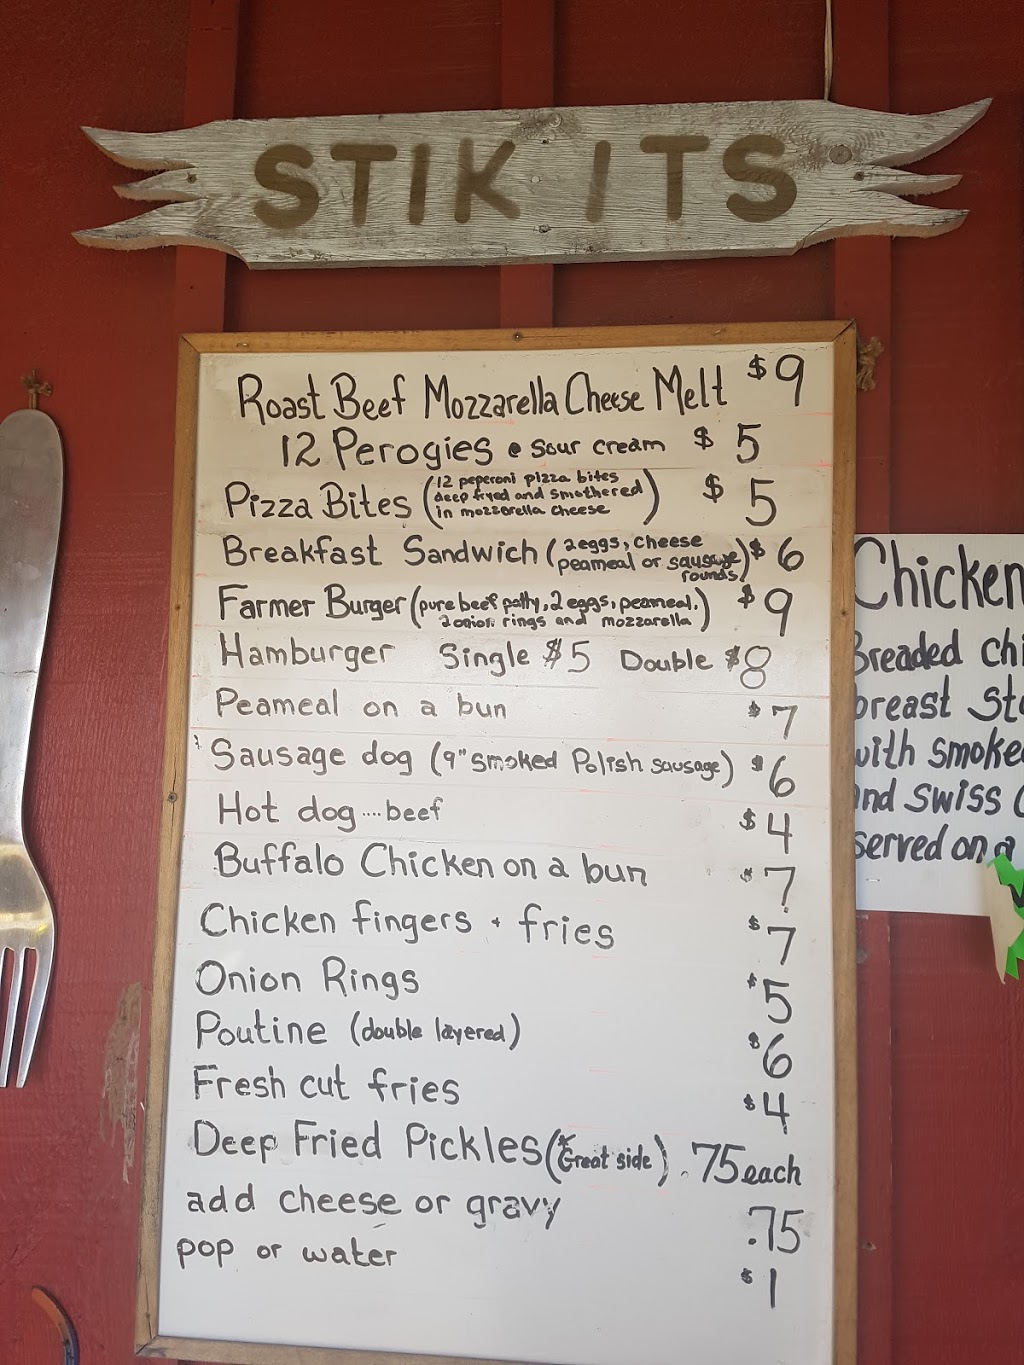 STIK ITS
Roast Beef Mozzarella Cheese Melt $9
12 Perogies @ sour cream $5
Pizza Bites (12 peperoni pizza bites deep fryed and smothered in mozzorella cheese) $5
Breakfast Sandwich (2eggs, cheese peameal or sausage rounds) $6
Farmer Burger (pure beef patty, 2 eggs, peameal, 2 onion rings and mozzarella) $9
Hamburger Single $5 Double $8
Peameal on a bun $7
Sausage dog (9" smoked Polish sausage) $6
Hot dog....beef $4
Buffalo Chicken on a bun $7
Chicken fingers + fries $7
Onion Rings $5
Poutine (double layered) $6
Fresh cut fries $4
Deep Fried Pickles (*Great side) .75 each
add cheese or gravy .75
pop or water $1
Chicken
Breaded chi
breast
with smoked
and swiss
served on a